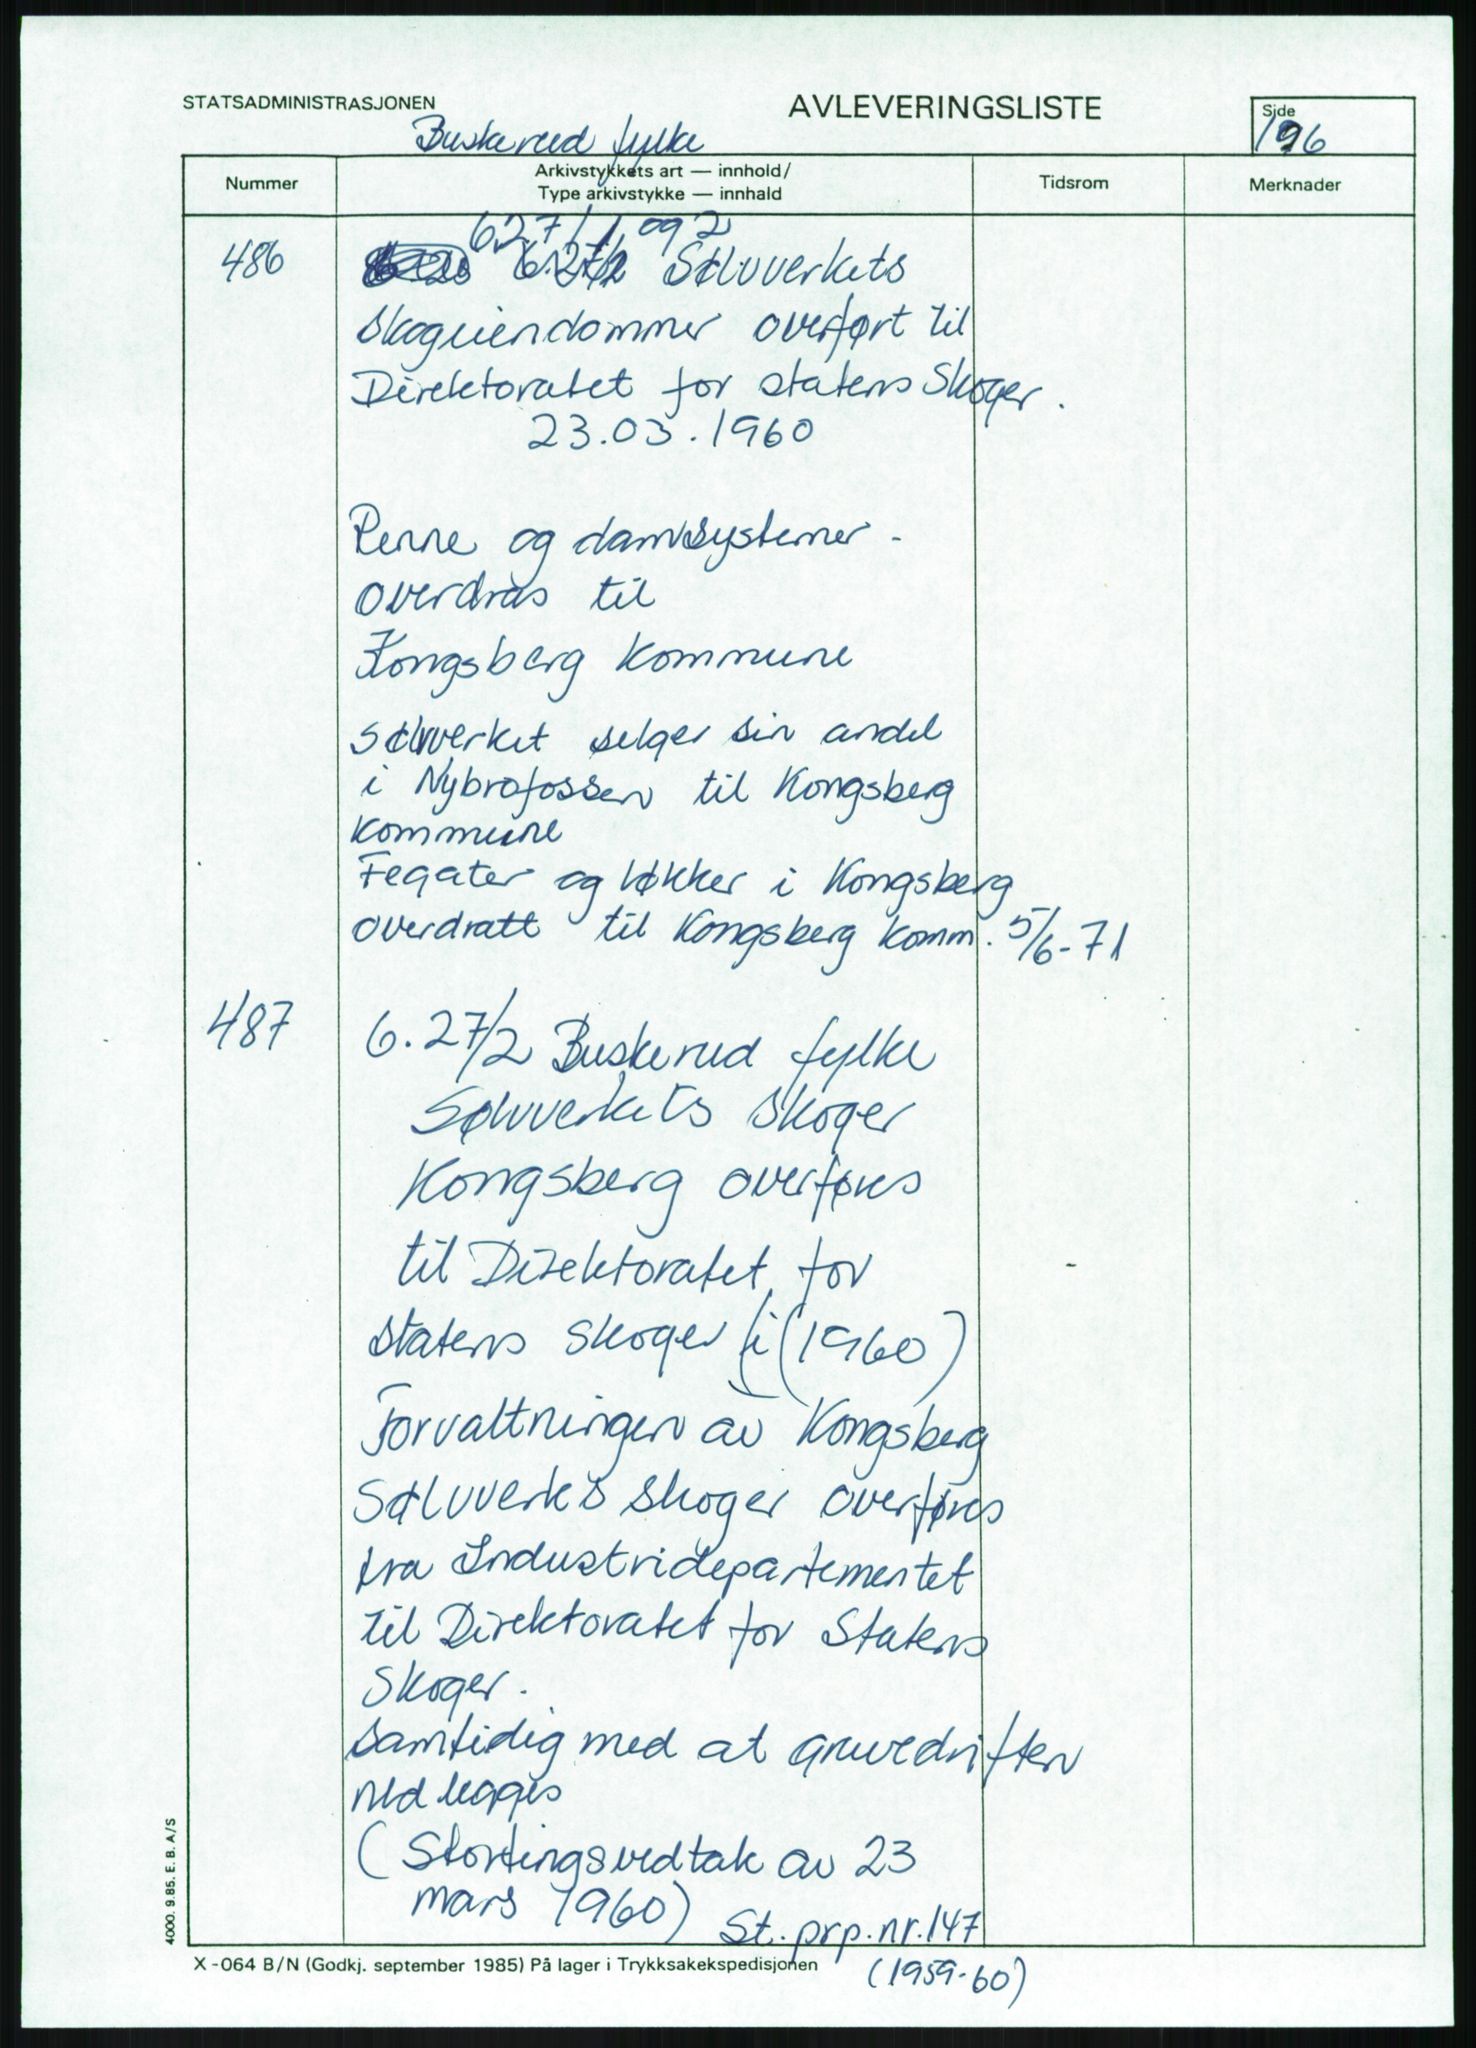 STATSADMINISTRASJONEN
AVLEVERINGSLISTE
Side
196
Buskerud fylke
Nummer
Arkivstykkets art — innhold/
Type arkivstykke — innhald
Tidsrom
Merknader
6.27/1 og 2
486 6.27/2 Sølvverkets
Skogeiendommer overført til
Direktoratet for statens Skoger.
23.03.1960
Renne og damsystemer -
overdras til
Kongsberg kommune
Sølvverket selger sin andel
i Nybrofossen til Kongsberg
kommune
Fegater og løkker i Kongsberg
overdratt til Kongsberg komm. 5/6-71
487 6.27/2 Buskerud fylke
Sølvverkets Skoger
Kongsberg overføres
til Direktoratet for
statens skoger i (1960)
Forvaltningen av Kongsberg
Sølvverks skoger overføres
fra Industridepartementet
til Direktoratet for Statens
Skoger.
samtidig med at gruvedriften
nedlegges
(Stortingsvedtak av 23
mars 1960) St. prp. nr. 147
(1959-60)
4000. 9.85. E. B. A/S
X-064 B/N (Godkj. september 1985) På lager i Trykksakekspedisjonen